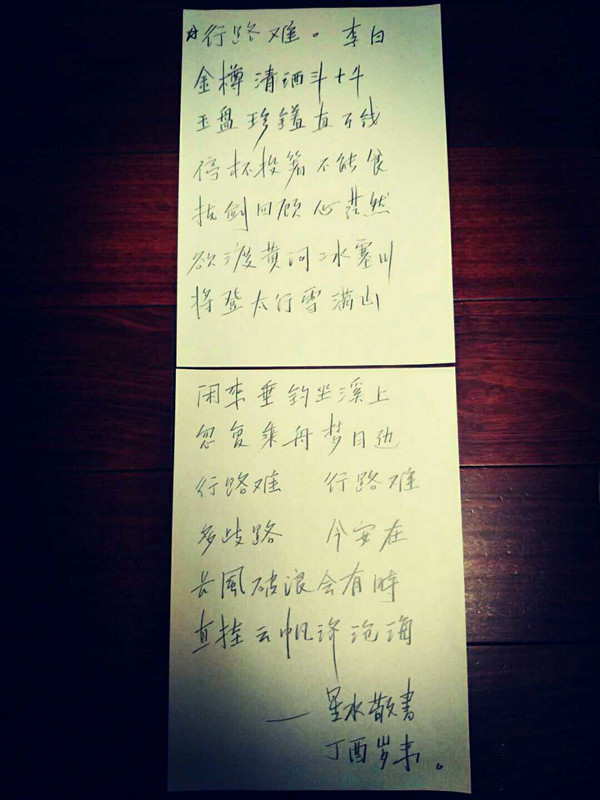 行路难。李白
金樽清酒斗十千
玉盘珍羞直万钱
停杯投箸不能食
拔剑回顾心茫然
欲渡黄河冰塞川
将登太行雪满山
闲来垂钓坐溪上
忽复乘舟梦日边
行路难 行路难
多歧路 今安在
长風破浪会有時
直挂云帆济沧海
—星水散書
丁酉岁末。